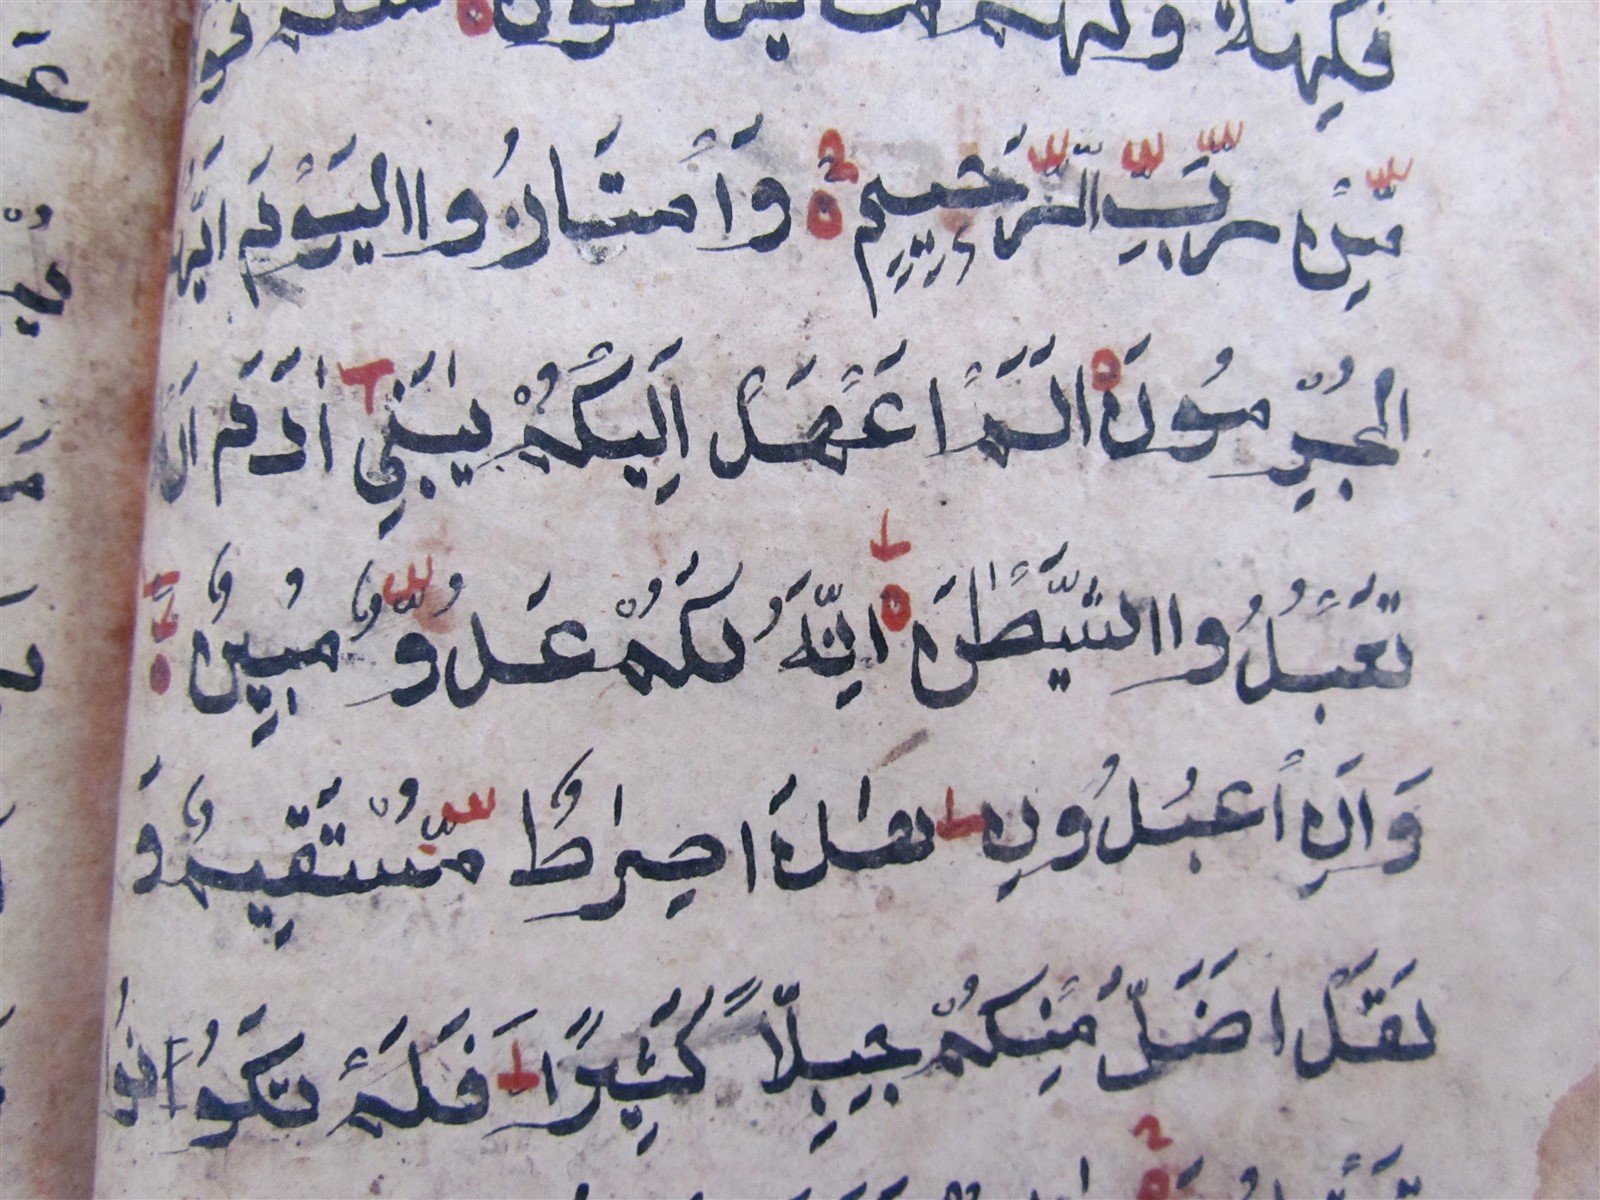 فَكِهَةٌ وَلَهُم مَّا يَدَّعُونَ سَلٰمٌ قَوْ
مِّنْ رَّبِّ الرَّحِيمٍ وَامْتَازُوا الْيَوْمَ اَيُّهَا
الْمُجْرِمُونَ اَلَمْ اَعْهَدْ اِلَيْكُمْ يٰبَنِي اٰدَمَ اَنْ
تَعْبُدُوا الشَّيْطٰنَ اِنَّهُ لَكُمْ عَدُوٌّ مُّبِينٌ
وَاَنِ اعْبُدُونِ هٰذَا صِرٰطٌ مُّسْتَقِيمٌ وَ
لَقَدْ اَضَلَّ مِنْكُمْ جِبِلًّا كَثِيرًا فَلَمْ تَكُونُو